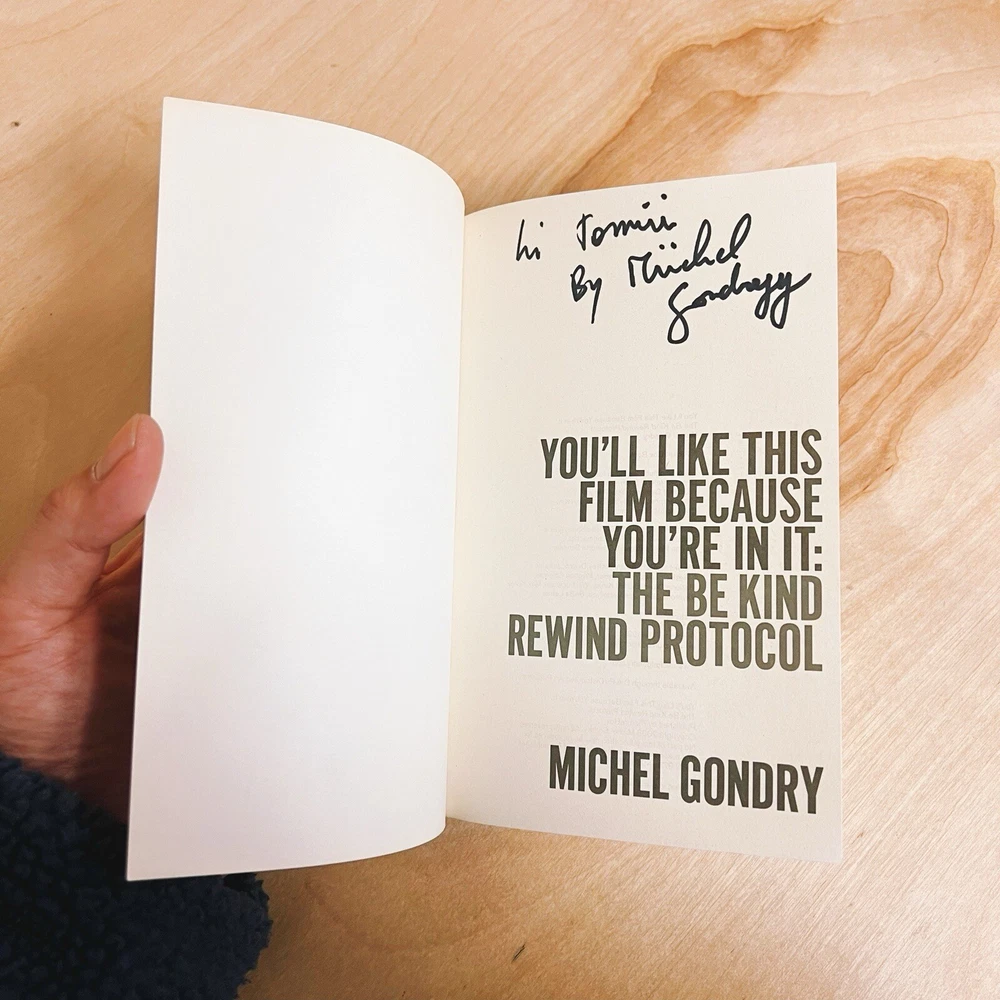 hi Tomiii
By Miichel
Gondryy
YOU'LL LIKE THIS
FILM BECAUSE
YOU'RE IN IT:
THE BE KIND
REWIND PROTOCOL
MICHEL GONDRY